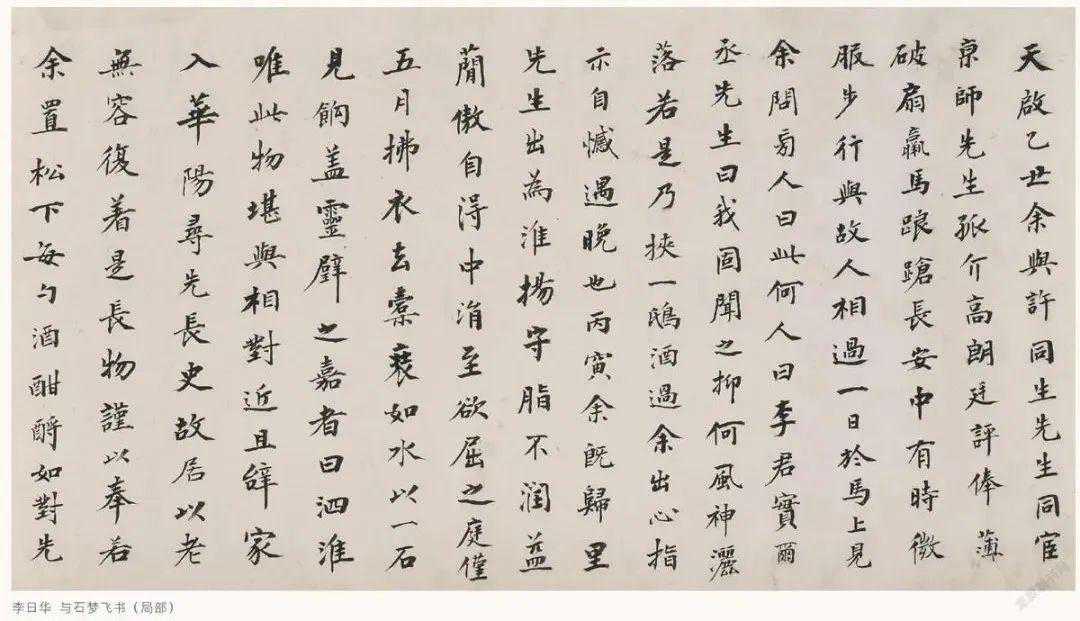 天啟乙丑余與許同生先生同官
京師先生孤介高朗廷評俸薄
破扇羸馬踉蹌長安中有時微
服步行與故人相過一日於馬上見
余問旁人曰此何人曰李君實爾
丞先生曰我固聞之抑何風神灑
落若是乃挾一鴟酒過余出心指
示自憾遇晚也丙寅余既歸里
先生出為淮揚守脂不潤益
簡傲自得中涓至欲屈之庭僅
五月拂衣去橐裝如水以一石
見餉蓋靈壁之嘉者曰泗淮
唯此物堪與相對近且辭家
入華陽尋先長史故居以老
無容復著是長物謹以奉君
余置松下每勺酒酣酹如對先
李日华 与石梦飞书（局部）